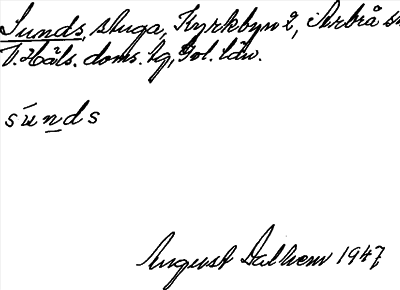 Sunds stuga, Kyrkbyn 2, Arbrå sn
V. Häls. doms. tg, Gvl. län.
súnds
August Dalhem 1947